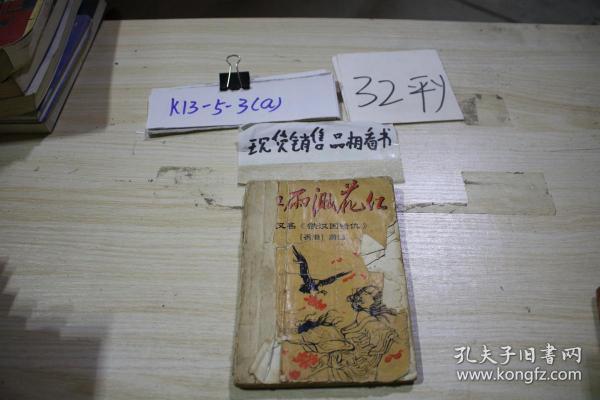 K13-5-3(a)
32平
现货销售品相看书
雨溅花红
又名《铁汉国情仇》
[香港]
孔夫子旧书网
www.kongfz.com